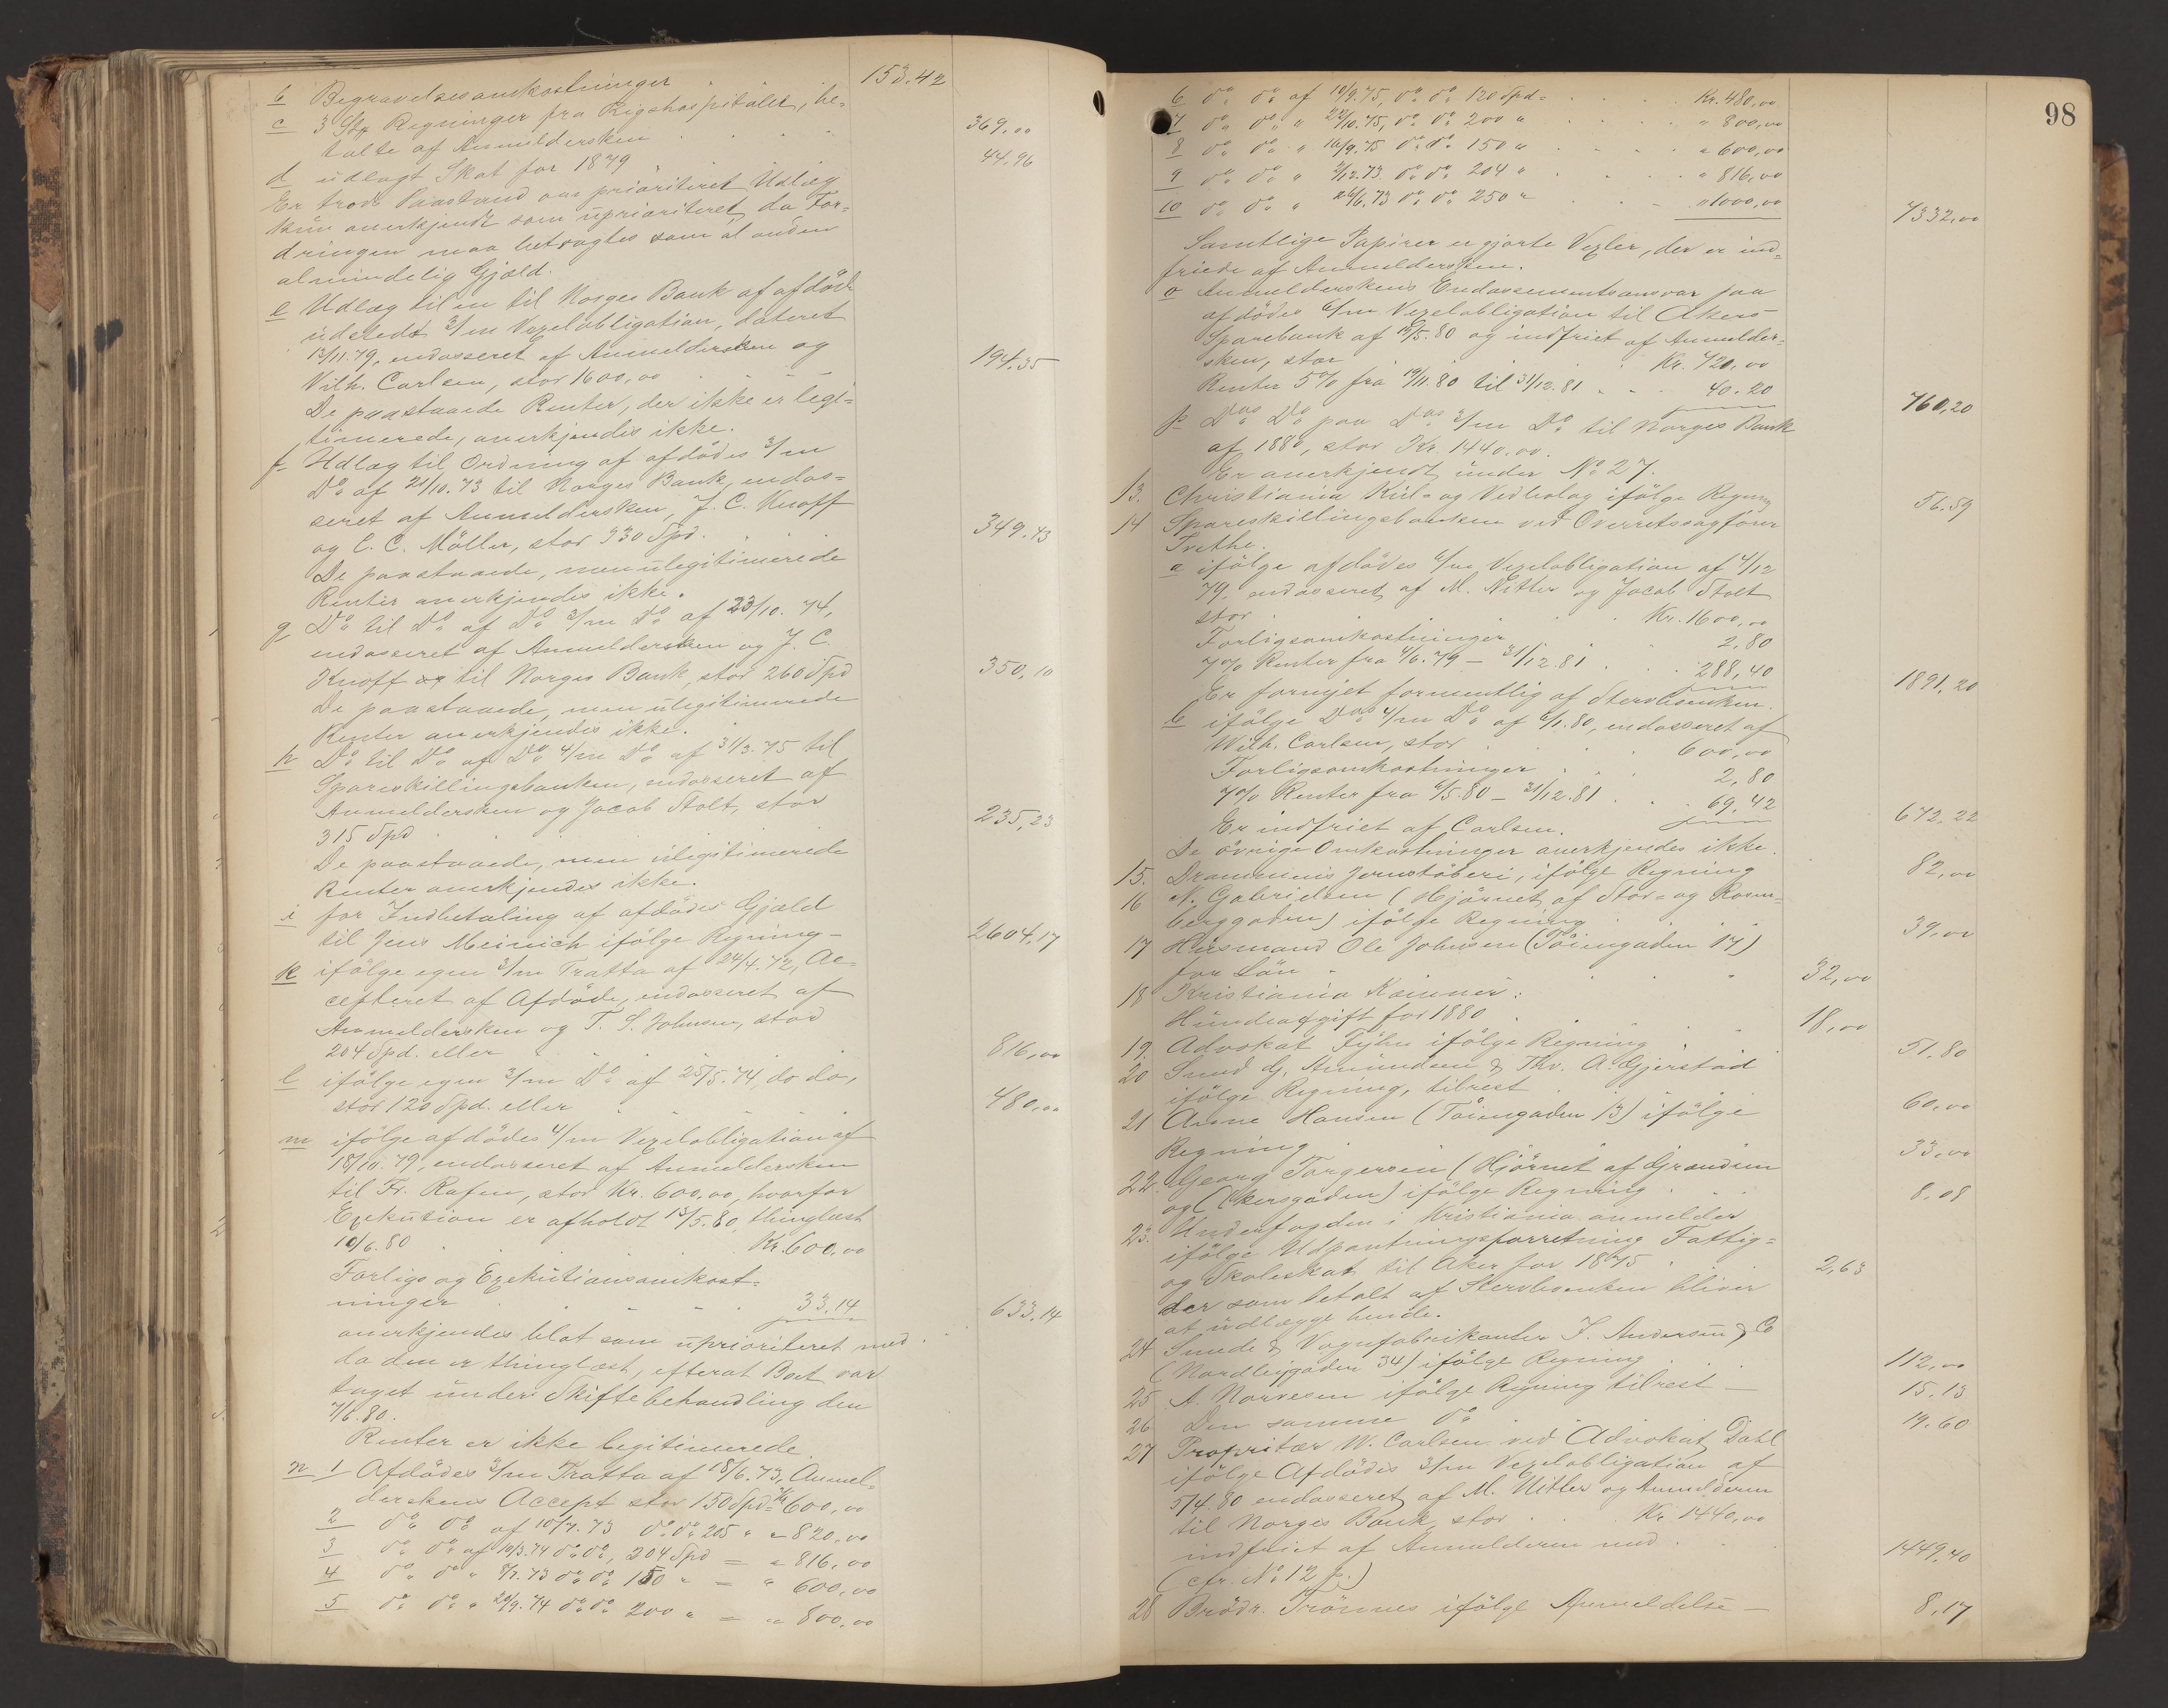 b Begravelsesomkostninger 153.42
c 3 Stk Regninger fra Rigshospitalet, be-
talte af Anmeldersken 369,00
d udlagt Skat for 1879 44.96
Er trods Paastand om prioriteret Udlæg
kun anerkjendt som uprioriteret, da For-
dringen maa betragtes som al anden
almindelig Gjæld.
e Udlæg til en til Norges Bank af afdöde
udstedt 3/m Vexelobligation, dateret
13/11.79, endosseret af Anmeldersken og
Vilh. Carlsen, stor 1600,00 194.35
De paastaaede Renter, der ikke er legi-
timerede, anerkjendes ikke.
f Udlæg til Ordning af afdödes 3/m
Do af 21/10.73 til Norges Bank, endos-
seret af Anmeldersken, J. C. Knoff
og C. C. Möller, stor 330 Spd. 349.43
De paastaaede, men ulegitimerede
Renter anerkjendes ikke.
g Do til Do af Do 3/m Do af 23/10.74,
endosseret af Anmeldersken og J. C.
Knoff til Norges Bank, stor 260 Spd 350,10
De paastaaede, men ulegitimerede
Renter anerkjendes ikke.
h Do til Do af Do 4/m Do af 31/3.75 til
Spareskillingsbanken, endosseret af
Anmeldersken og Jacob Stolt, stor
315 Spd 235,23
De paastaaede, men ulegitimerede
Renter anerkjendes ikke.
i for Indbetaling af afdödes Gjæld
til Jens Meinich ifölge Regning- 2604,17
k ifölge egen 3/m Tratta af 24/4.72, Ac-
cepteret af Afdöde, endosseret af
Anmeldersken og T. S. Johnsen, stor
204 Spd. eller 816,00
l ifölge egen 3/m Do af 25/5.74, do do,
stor 120 Spd. eller 480,00
m ifölge afdödes 4/m Vexelobligation af
18/10.79, endosseret af Anmeldersken
til Fr. Rafen, stor Kr. 600,00, hvorfor
Exekution er afholdt 13/5.80, thinglæst
10/6.80 Kr. 600,00
Forligs og Exekutionsomkost-
ninger 33,14 633,14
anerkjendes blot som uprioriteret med
da den er thinglæst, efterat Boet var
taget under Skiftebehandling den
7/6.80.
Renter er ikke legitimerede
n 1 Afdödes 3/m Tratta af 18/6.73, Anmel-
derskens Accept stor 150 Spd = Kr 600,00
2 do do af 10/7.73 do do 205 " " 820,00
3 do do af 10/3.74 do do, 204 Spd = " 816,00
4 do do " 3/7.73 do do 150 " = " 600,00
5 do do " 20/9.74 do do 200 " = " 800,00
98
6 do do af 10/9.75, do do 120 Spd = Kr. 480,00
7 do do " 22/10.75, do do 200 " " 800,00
8 do do " 16/9.75 do do 150 " " 600,00
9 do do " 2/12.73 do do 204 " " 816,00
10 do do " 26/6.73 do do 250 " " 1000,00 7332,00
Samtlige Papirer er gjorte Vexler, der er ind-
friede af Anmeldersken.
o Anmelderskens Endossementsansvar paa
afdödes 6/m Vexelobligation til Akers
Sparebank af 19/5.80 og indfriet af Anmelder-
sken, stor Kr. 720,00
Renter 5% fra 19/11.80 til 31/12.81 40.20 760,20
p Das Do paa Das 3/m Do til Norges Bank
af 1880, stor Kr. 1440.00.
Er anerkjendt under No 27.
13. Christiania Kul- og Vedbolag ifölge Regning 56.59
14 Spareskillingsbanken ved Overretssagförer
a ifölge afdödes 6/m Vexelobligation af 4/12
79, endosseret af M. Nitter og Jacob Stolt
stor Kr. 1600,00
Forligsomkostninger 2,80
7% Renter fra 4/6.79 - 31/12.81 288,40 1891,20
Er fornyet formentlig af Stervboenken.
b ifölge Das 4/m Do af 6/1.80, endosseret af
Wilh. Carlsen, stor 600,00
Forligsomkostninger 2,80
7% Renter fra 6/5.80 - 31/12.81 69,42 672.22
Er indfriet af Carlsen.
De övrige Omkostninger anerkjendes ikke.
15. Drammens Jernstöberi, ifölge Regning 82,00
16 N. Gabrielsen (Hjörnet af Stor- og Rosen-
berggaden) ifölge Regning 39,00
17 Husmand Ole Johnsen (Töiengaden 17)
for Lön 32,00
18 Kristiania Kæmner:
Hundeafgift for 1880 18,00
19. Advokat Fÿhn ifölge Regning 51.80
20 Smed G. Amundsen & Thv. A. Gjerstad
ifölge Regning, tilrest 60,00
21 Anne Hansen (Töiengaden 13) ifölge
Regning 33,00
22. Georg Torgersen (Hjörnet af Grændsen
og Akersgaden) ifölge Regning 8,08
23. Underfogden i Kristiania anmelder
ifölge Udpantningsforretning Fattig-
og Skoleskat til Aker for 1875 2,63
der som betalt af Stervboenken bliver
at udlægge hende.
24 Smede & Vognfabrikanter J. Andersen & Co
(Nordbygaden 34) ifölge Regning 112,00
25 A. Narvesen ifölge Regning tilrest 15.13
26 Den samme do 19.60
27 Proprietær W. Carlsen ved Advokat Dahl
ifölge Afdödes 3/m Vexelobligation af
5/4.80 endosseret af M. Nitter og Anmelderen
til Norges Bank, stor Kr. 1440,00
indfriet af Anmelderen med 1449.40
(cfr. No 12 p.)
28 Brödr. Trönnes ifölge Anmeldelse 8,17